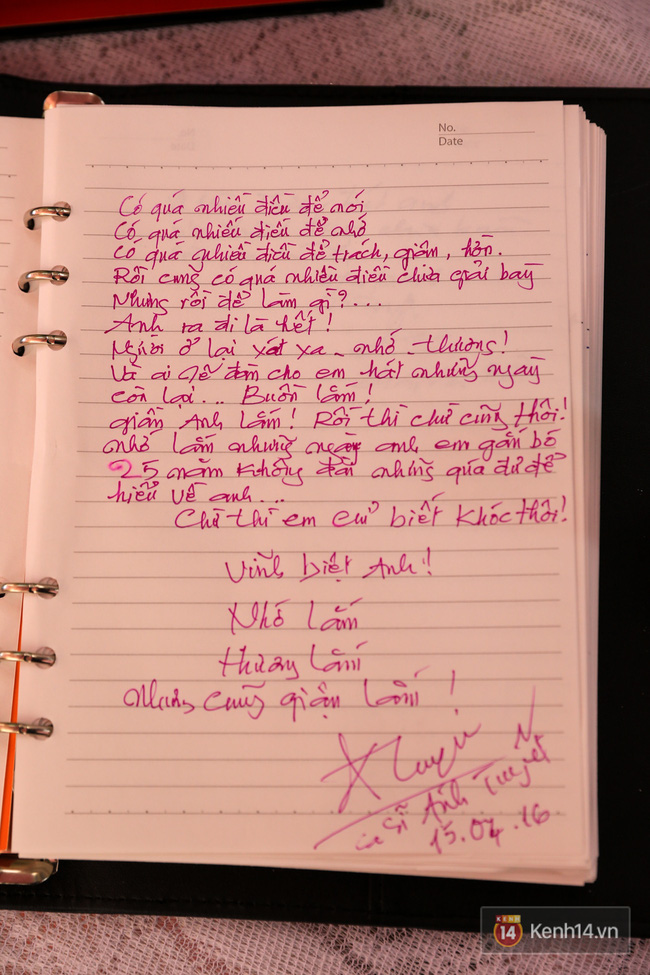 No.
Date
Có quá nhiều điều để nói
Có quá nhiều điều để nhớ
Có quá nhiều điều để trách, giận, hờn.
Rồi cũng có quá nhiều điều chưa giải bày
Nhưng rồi để làm gì?...
Anh ra đi là hết!
Người ở lại xót xa - nhớ - thương!
Và ai sẽ đàn cho em hát những ngày
còn lại... Buồn lắm!
giận Anh lắm! Rồi thì chữ cũng thôi!
nhớ lắm những ngày anh em gắn bó
25 năm không dài nhưng quá đủ để
hiểu về anh...
Chừ thì em chỉ biết khóc thôi!
Vĩnh biệt Anh!
Nhớ lắm
Thương lắm
Nhưng cũng giận lắm!
Ca sĩ Ánh Tuyết
15.04.16
KENH 14
Kenh14.vn